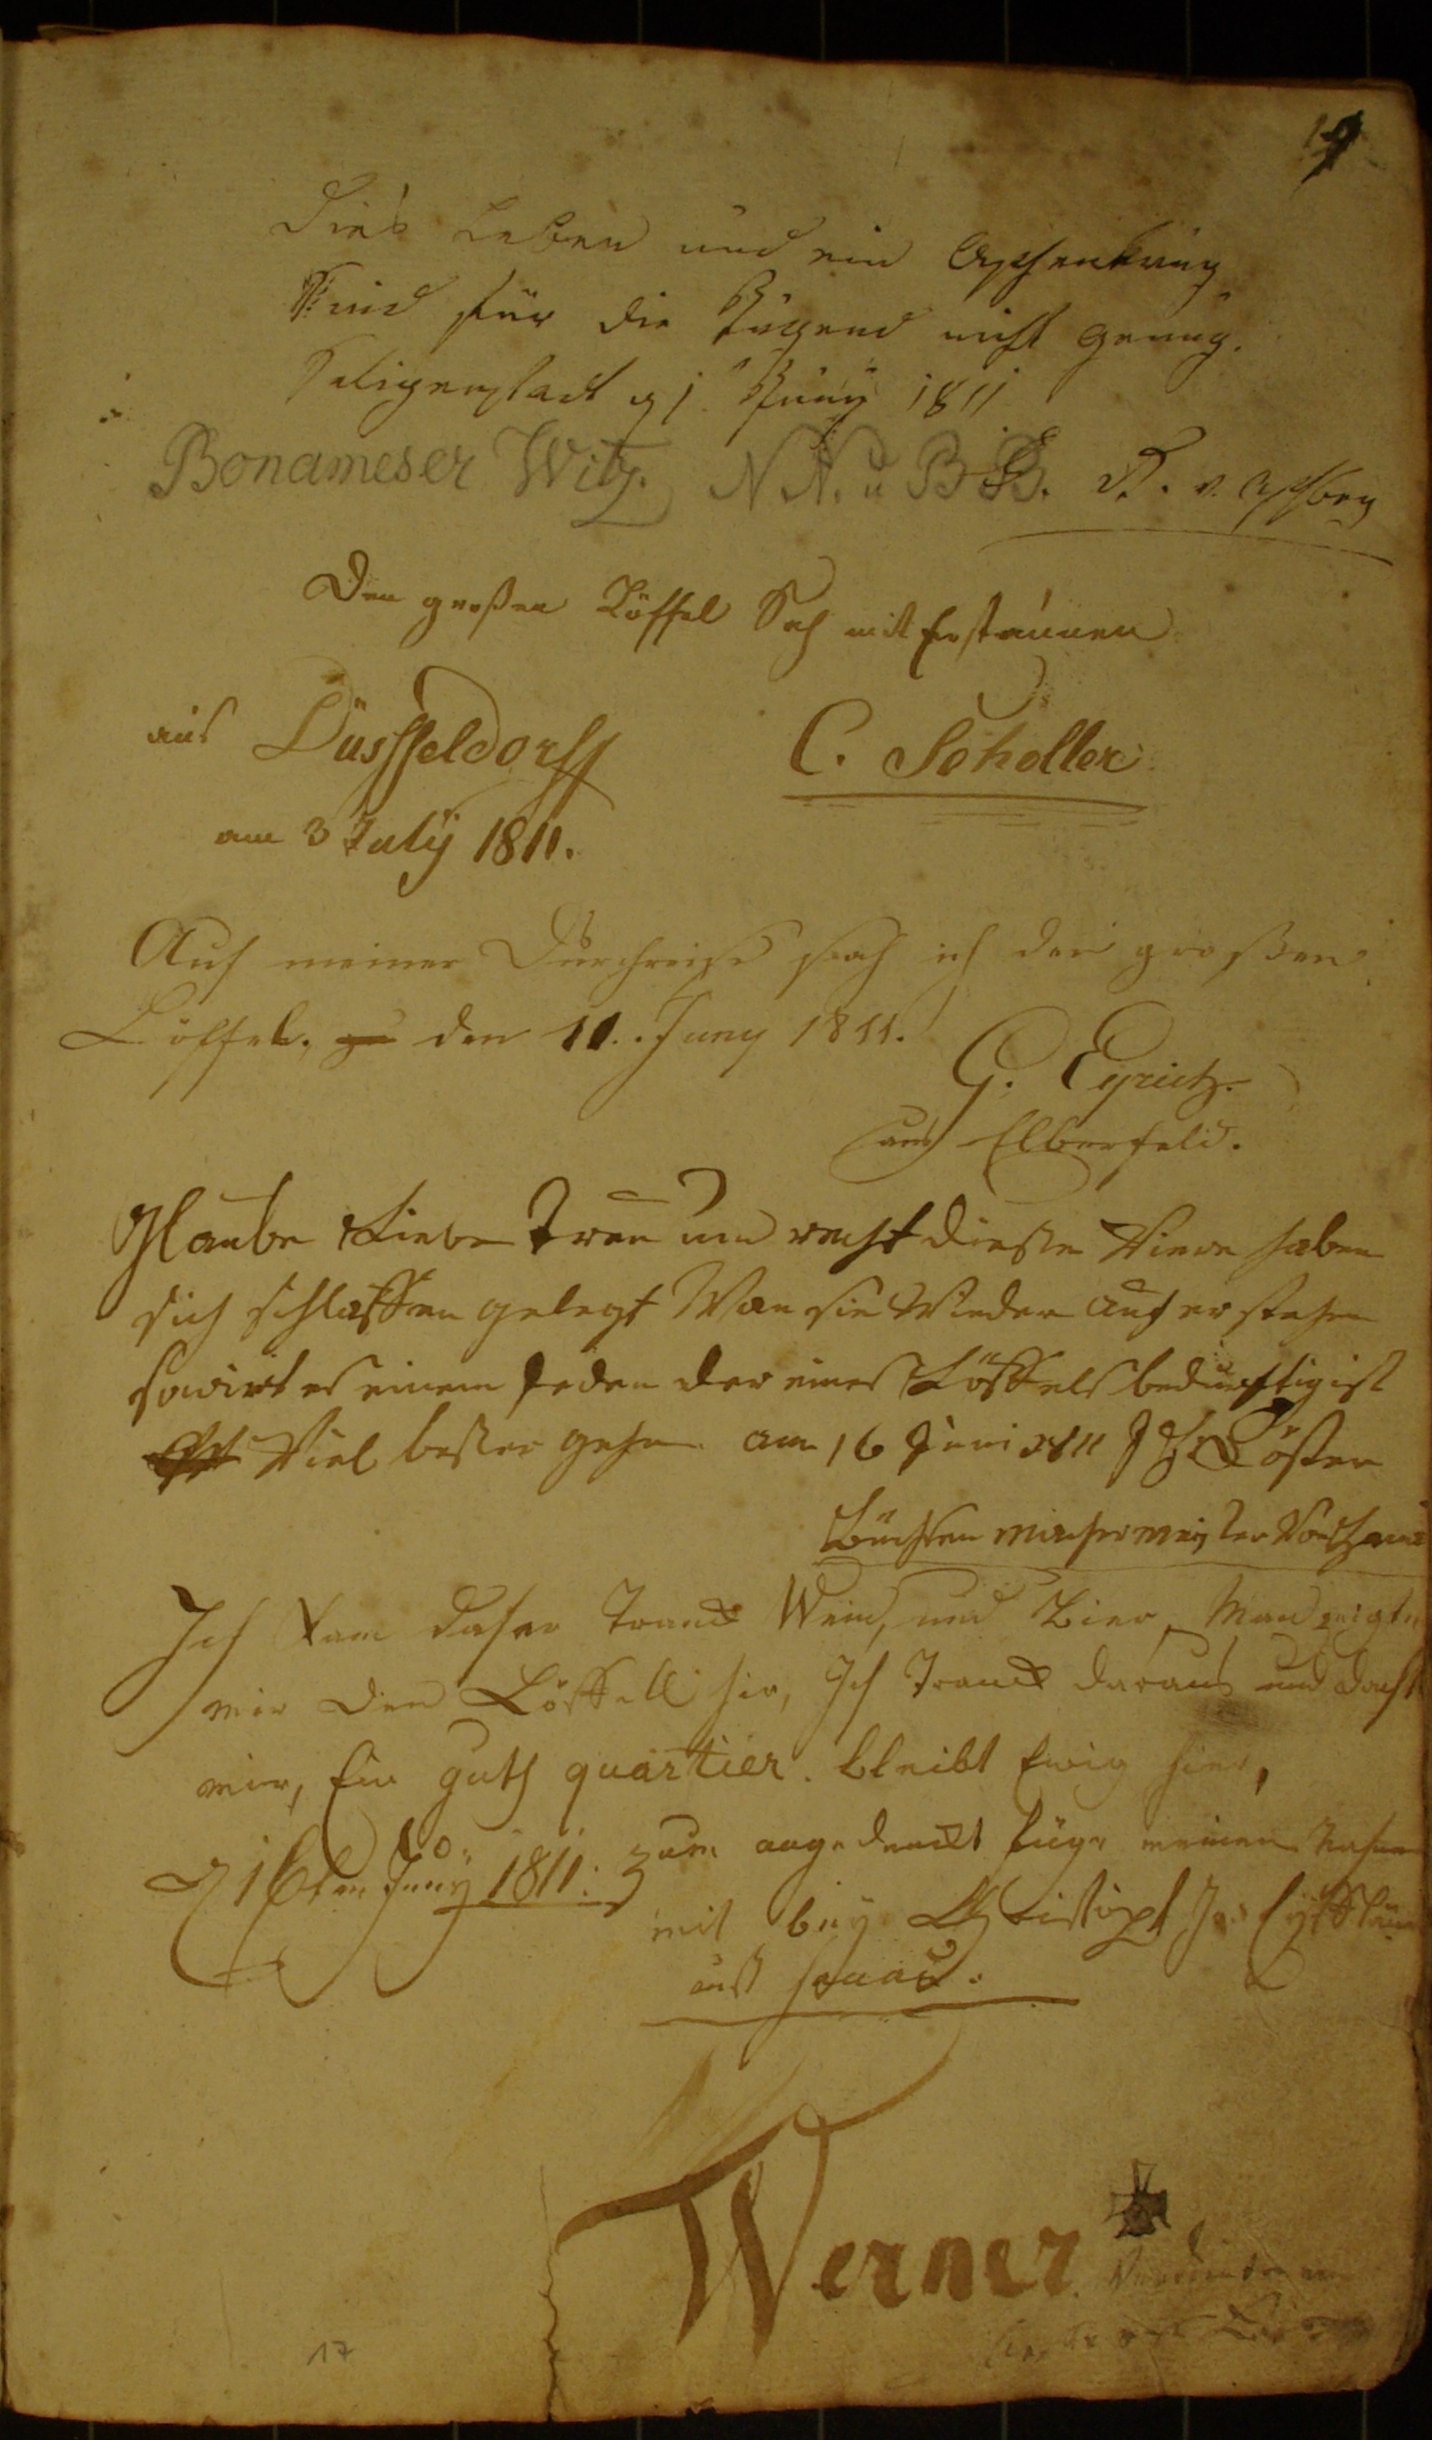 17
Dies Leben und ein Aschenkrug
Sind für die Tugend nicht genug.
Seligenstadt d 1. Juny 1811
Bonameser Witz. N N. u B B.
Den großen Löffel Sah mit Erstaunen
aus Düsseldorff C. Scholler
am 3 July 1811.
Auf meiner Durchreise sah ich den großen
Löffel. zu den 11. Juny 1811.
G. Eyrich.
aus Elberfeld.
Glaube Liebe Treu und recht diese Viere haben
sich schlaffen gelegt Wan sie Wieder auf er stehen
so wirt es einem jeden der eines Löffels bedürftig ist
Viel besser gehen am 16 Juni 1811
Büchsen macher meister
Ich kam daher Tranck Wein, und Bier, Man zeigte
mir den Löffell hir, Ich Tranck daraus und dacht
mir, Ein guth quartier. bleibt Ewig hier,
d 16ten Juny 1811. zum angedenckt füge meinen Nahmen
mit bey Christoph
aus Hanau.
Werner
17